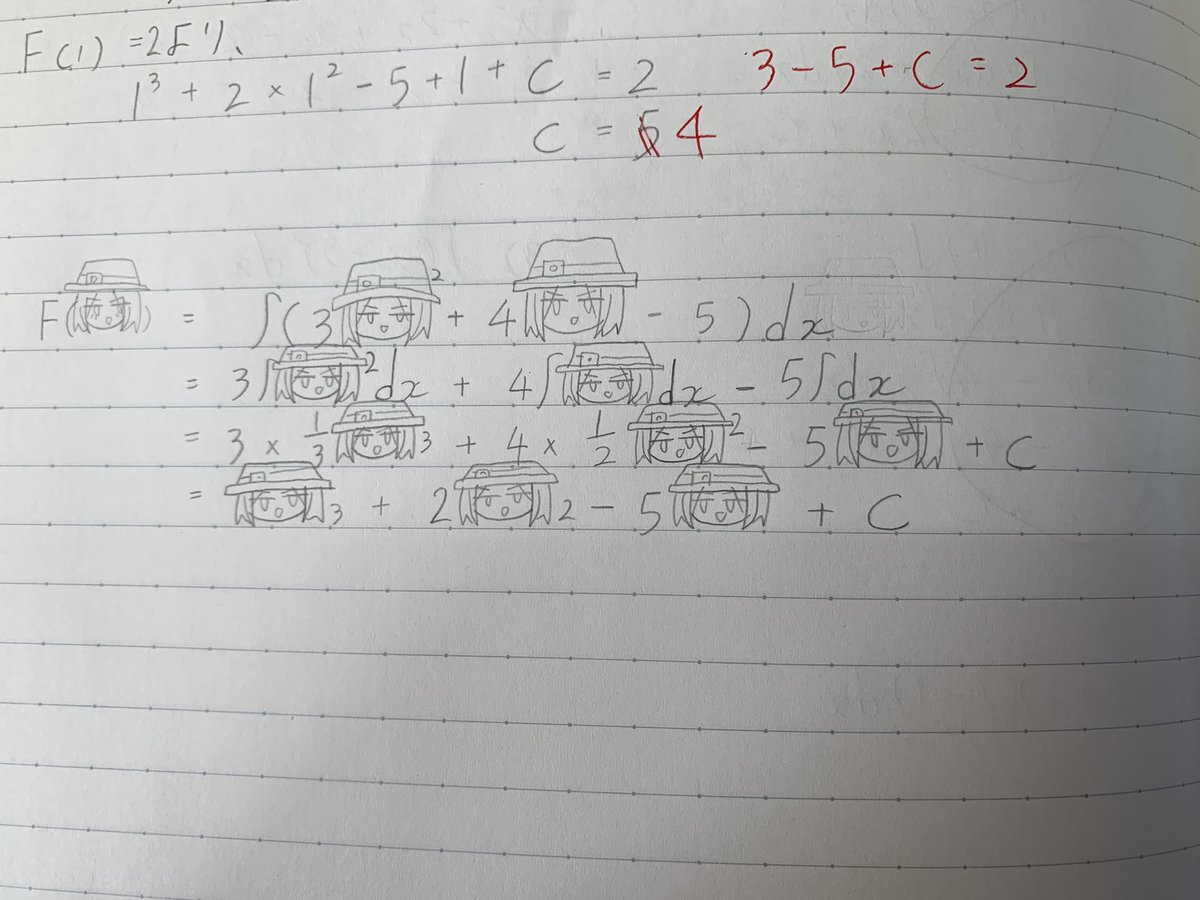 F(1)=2より、
1³ + 2 × 1² - 5 + 1 + C = 2 3 - 5 + C = 2
C = 4
F( ) = ∫(3 ² + 4 - 5)dx
= 3∫ ²dx + 4∫ dx - 5∫dx
= 3 × 1/3 3 + 4 × 1/2 ² - 5 + C
= 3 + 2 2 - 5 + C